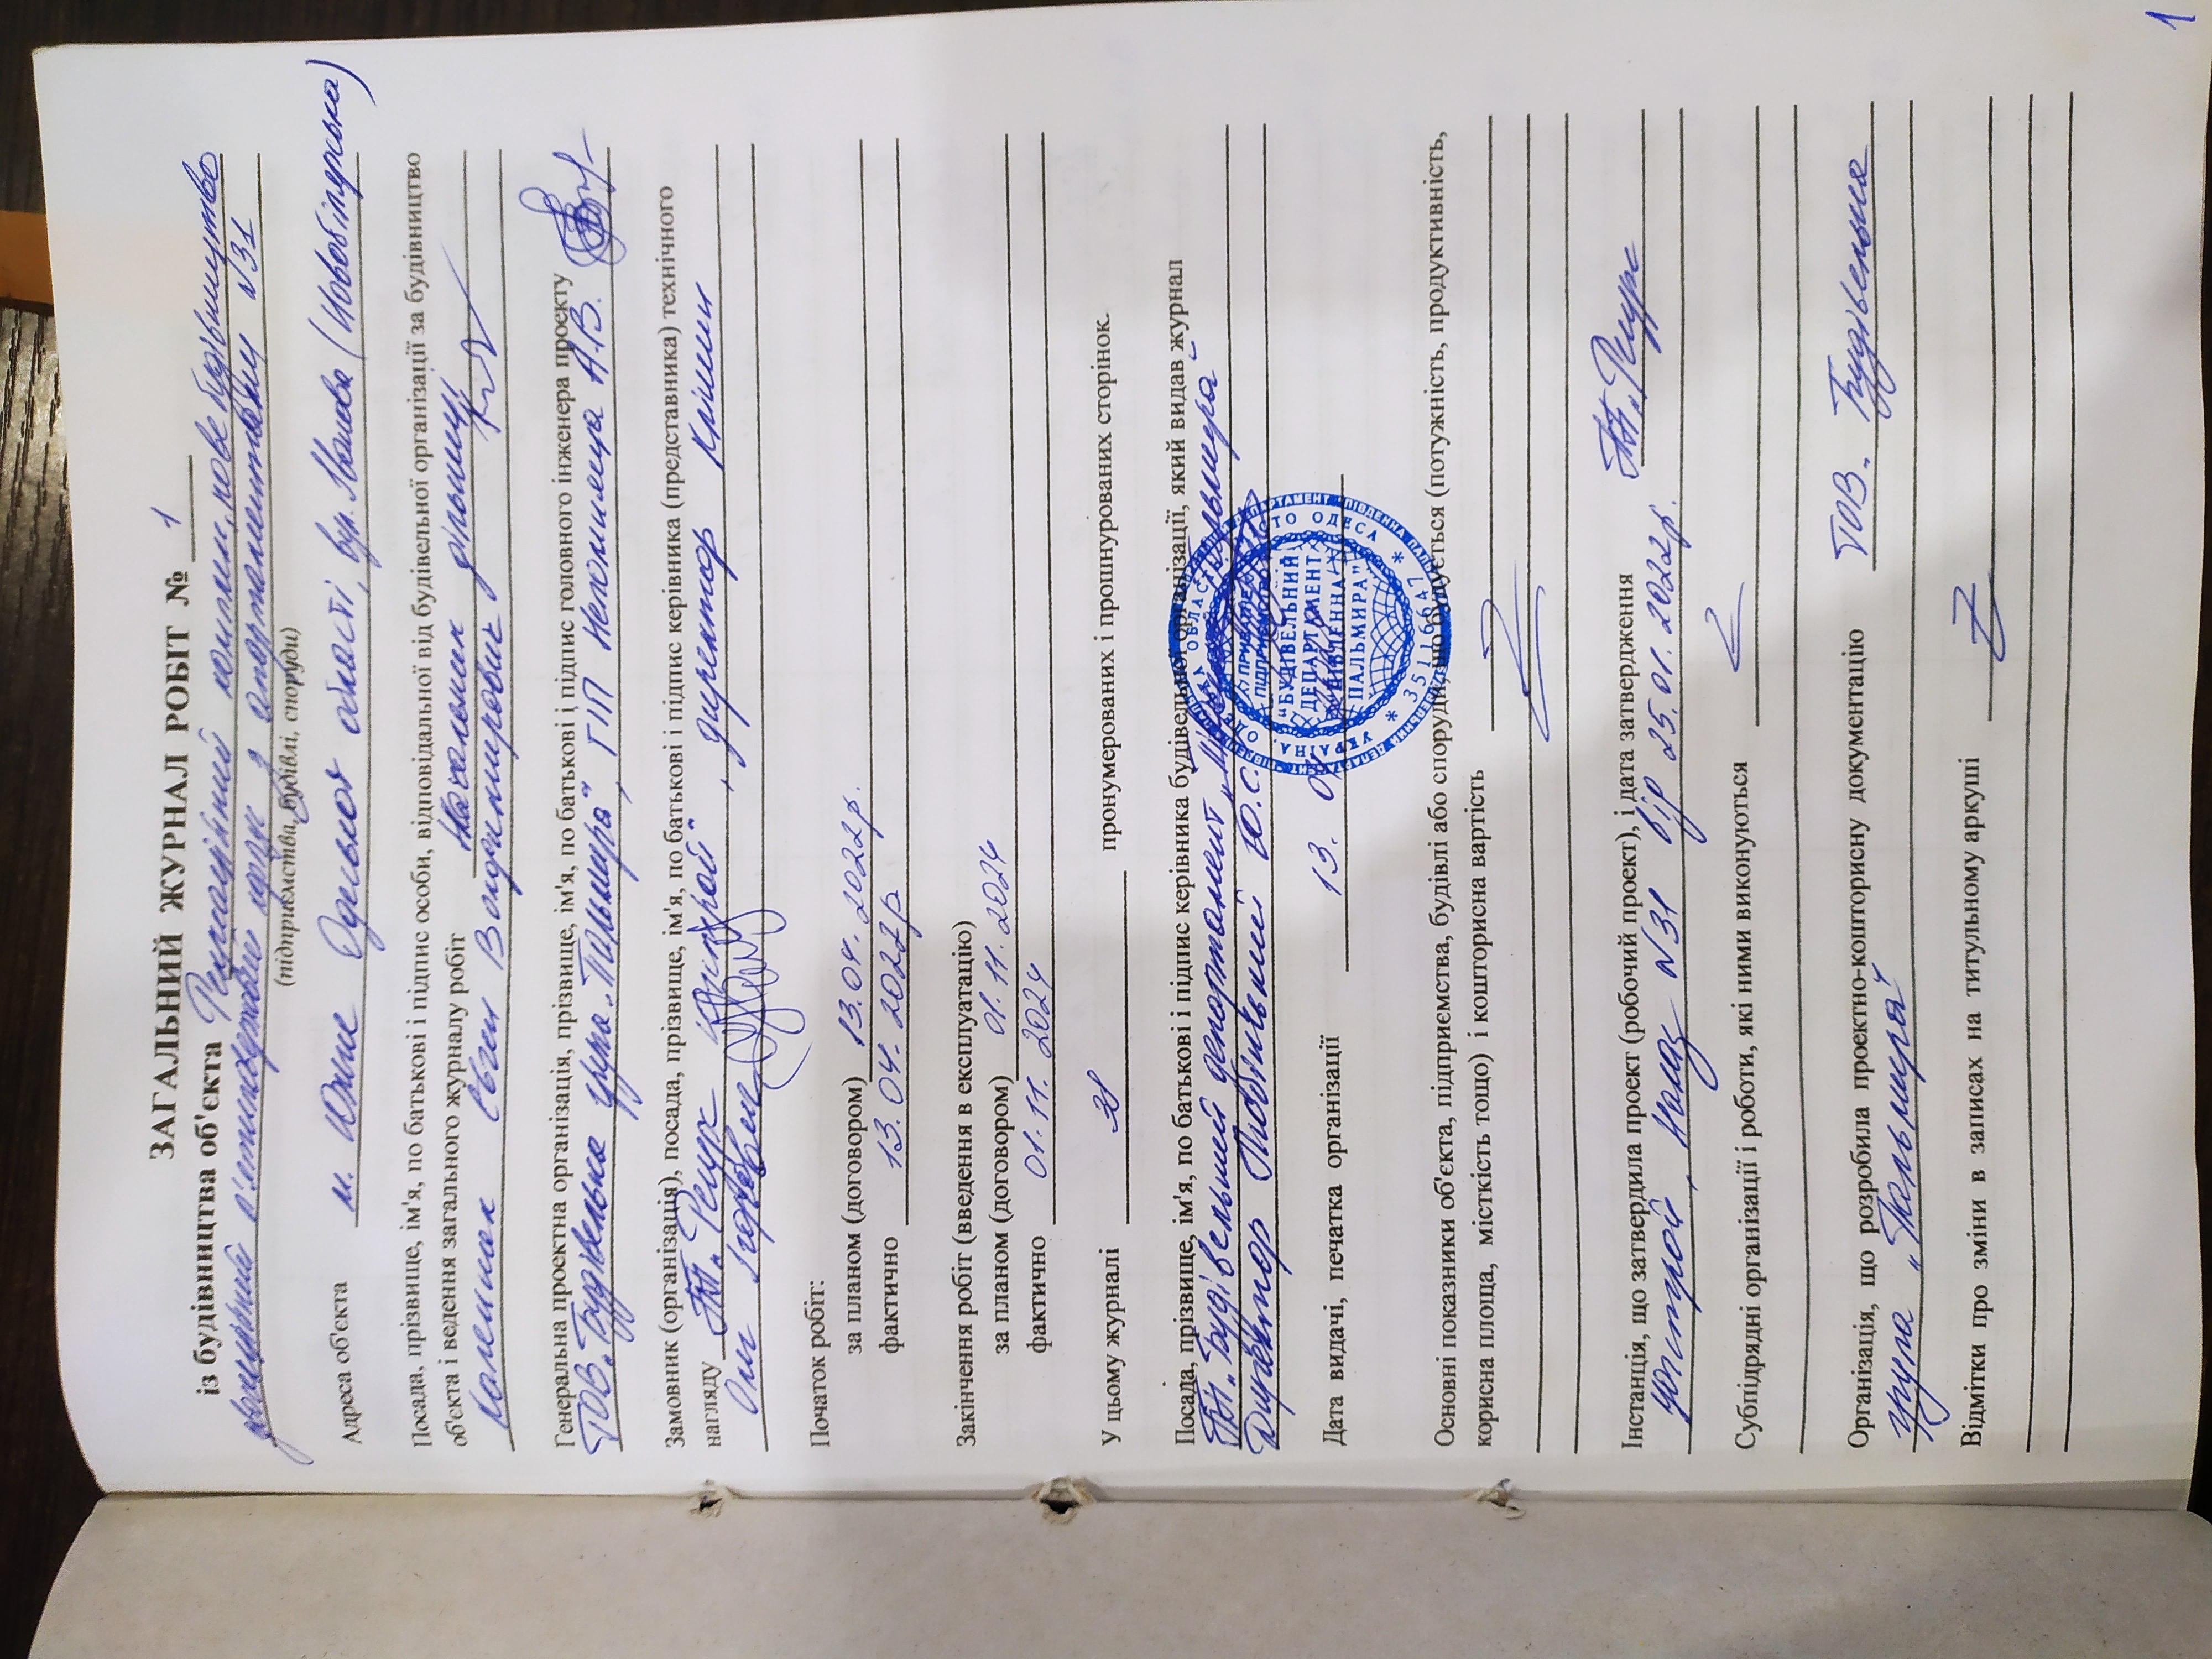 ЗАГАЛЬНИЙ ЖУРНАЛ РОБІТ № 1
із будівництва об'єкта Рекреаційний комплекс, нове будівництво
п'ятиповерховий корпус з апартаментами №31
(підприємства, будівлі, споруди)
Адреса об'єкта м. Южне Одеської області, вул. (Новобілярська)
Посада, прізвище, ім'я, по батькові і підпис особи, відповідальної від будівельної організації за будівництво
об'єкта і ведення загального журналу робіт Начальник дільниці
Євген Володимирович
Генеральна проектна організація, прізвище, ім'я, по батькові і підпис головного інженера проекту
ТОВ „Будівельна група „Пальмира", ГІП Непомнеща А.В.
Замовник (організація), посада, прізвище, ім'я, по батькові і підпис керівника (представника) технічного
нагляду ПП „Ресурс", директор
Олег Ігорович
Початок робіт:
за планом (договором) 13.04. 2022р.
фактично 13. 04. 2022р
Закінчення робіт (введення в експлуатацію)
за планом (договором) 01.11.2024
фактично 01.11. 2024
У цьому журналі пронумерованих і прошнурованих сторінок.
Посада, прізвище, ім'я, по батькові і підпис керівника будівельної організації, який видав журнал
ПП „Будівельний департамент „Південна Пальмира"
Директор Ю.С.
Дата видачі, печатка організації 13. 04
УКРАЇНА. ОДЕСЬКА ОБЛАСТЬ, МІСТО ОДЕСА
ПРИВАТНЕ
ПІДПРИЄМСТВО
"БУДІВЕЛЬНИЙ
ДЕПАРТАМЕНТ
"ПІВДЕННА
ПАЛЬМИРА"
* 35116647 *
Основні показники об'єкта, підприємства, будівлі або споруди, що будується (потужність, продуктивність,
корисна площа, місткість тощо) і кошторисна вартість
Інстанція, що затвердила проект (робочий проект), і дата затвердження ПП „Ресурс
Наказ №31 від 25.01.2022р.
Субпідрядні організації і роботи, які ними виконуються
Організація, що розробила проектно-кошторисну документацію ТОВ „Будівельна
група „Пальмира"
Відмітки про зміни в записах на титульному аркуші
1